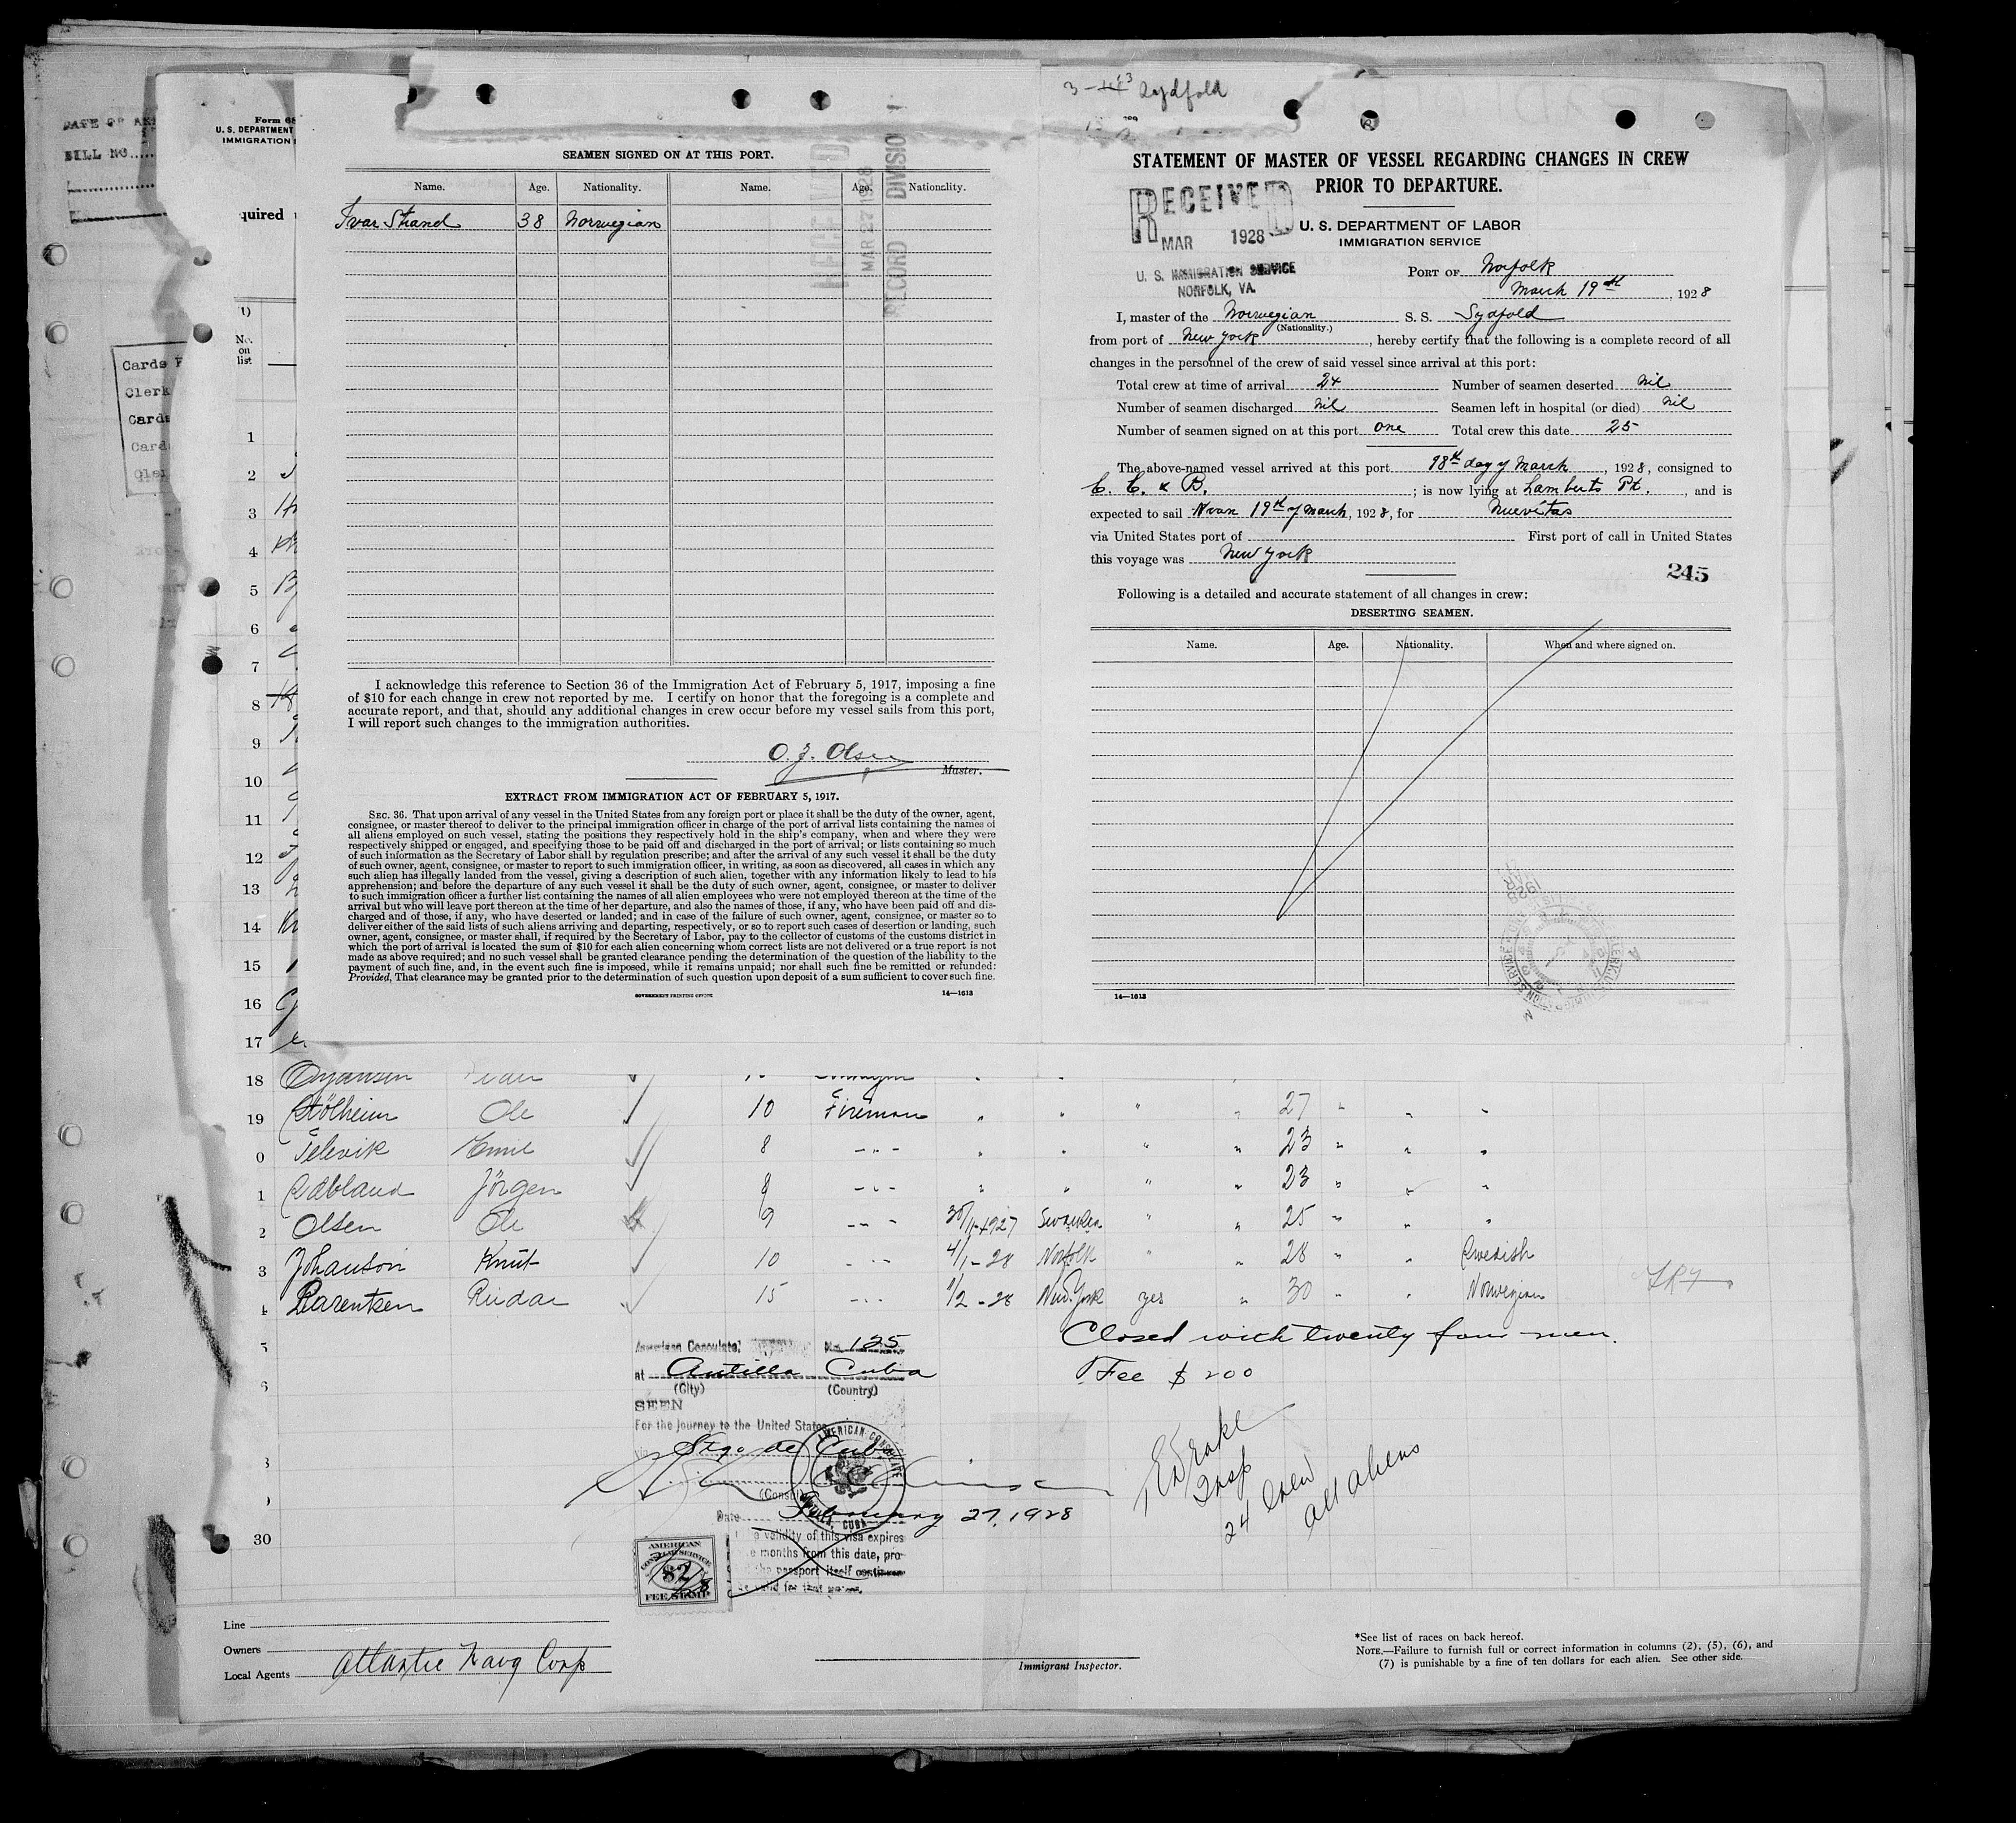 3-4 Sydfold
DATE OF
BILL NO.....
Form 68
U. S. DEPARTMENT
IMMIGRATION
quired
No.
on
list
Cards
Clerk
Cards
Card
SEAMEN SIGNED ON AT THIS PORT.
Name. Age. Nationality. Name. Age. Nationality.
Ivar Strand 38 Norwegian
RECEIVED
MAR 27 1928
RECORD DIVISION
I acknowledge this reference to Section 36 of the Immigration Act of February 5, 1917, imposing a fine
of $10 for each change in crew not reported by me. I certify on honor that the foregoing is a complete and
accurate report, and that, should any additional changes in crew occur before my vessel sails from this port,
I will report such changes to the immigration authorities.
O. J. Olsen
Master.
EXTRACT FROM IMMIGRATION ACT OF FEBRUARY 5, 1917.
SEC. 36. That upon arrival of any vessel in the United States from any foreign port or place it shall be the duty of the owner, agent,
consignee, or master thereof to deliver to the principal immigration officer in charge of the port of arrival lists containing the names of
all aliens employed on such vessel, stating the positions they respectively hold in the ship's company, when and where they were
respectively shipped or engaged, and specifying those to be paid off and discharged in the port of arrival; or lists containing so much
of such information as the Secretary of Labor shall by regulation prescribe; and after the arrival of any such vessel it shall be the duty
of such owner, agent, consignee, or master to report to such immigration officer, in writing, as soon as discovered, all cases in which any
such alien has illegally landed from the vessel, giving a description of such alien, together with any information likely to lead to his
apprehension; and before the departure of any such vessel it shall be the duty of such owner, agent, consignee, or master to deliver
to such immigration officer a further list containing the names of all alien employees who were not employed thereon at the time of the
arrival but who will leave port thereon at the time of her departure, and also the names of those, if any, who have been paid off and dis-
charged and of those, if any, who have deserted or landed; and in case of the failure of such owner, agent, consignee, or master so to
deliver either of the said lists of such aliens arriving and departing, respectively, or so to report such cases of desertion or landing, such
owner, agent, consignee, or master shall, if required by the Secretary of Labor, pay to the collector of customs of the customs district in
which the port of arrival is located the sum of $10 for each alien concerning whom correct lists are not delivered or a true report is not
made as above required; and no such vessel shall be granted clearance pending the determination of the question of the liability to the
payment of such fine, and, in the event such fine is imposed, while it remains unpaid; nor shall such fine be remitted or refunded:
Provided, That clearance may be granted prior to the determination of such question upon deposit of a sum sufficient to cover such fine.
GOVERNMENT PRINTING OFFICE 14—1613
STATEMENT OF MASTER OF VESSEL REGARDING CHANGES IN CREW
PRIOR TO DEPARTURE.
RECEIVED
MAR 1928
U. S. IMMIGRATION SERVICE
NORFOLK, VA.
U. S. DEPARTMENT OF LABOR
IMMIGRATION SERVICE
PORT OF Norfolk
March 19th, 1928
I, master of the Norwegian S. S. Sydfold
(Nationality.)
from port of New York, hereby certify that the following is a complete record of all
changes in the personnel of the crew of said vessel since arrival at this port:
Total crew at time of arrival 24 Number of seamen deserted nil
Number of seamen discharged nil Seamen left in hospital (or died) nil
Number of seamen signed on at this port one Total crew this date 25
The above-named vessel arrived at this port 18th day of March, 1928, consigned to
C. C. & B.; is now lying at Lamberts Pt., and is
expected to sail Noon 19th of March, 1928, for Nuevitas
via United States port of First port of call in United States
this voyage was New York
245
Following is a detailed and accurate statement of all changes in crew:
DESERTING SEAMEN.
Name. Age. Nationality. When and where signed on.
14—1613
1
2
3
4
5
6
7
8
9
10
11
12
13
14
15
16
17
18
19 Stölheim Ole 10 Fireman " " " " 27 " " "
0 Televik Emil 8 -"- " " " " 23 " " "
1 Ødbland Jörgen 9 -"- " " " " 23 " " "
2 Olsen Ole 9 -"- 30/11-1927 Swansea " " 25 " " "
3 Johanson Knut 10 -"- 4/1-28 Norfolk " " 28 " " Swedish
4 Barentsen Reidar 15 -"- 1/2-28 New York yes " 30 " " Norwegian
5
6
30
American Consulate No. 125
at Antilla Cuba
(City) (Country)
SEEN
For the journey to the United States
Stgo de Cuba
(Consul)
Date February 27, 1928
AMERICAN CONSULATE
ANTILLA, CUBA
validity of this visa expires
months from this date, pro-
the passport itself continues
valid for that
AMERICAN
CONSULAR SERVICE
$2
FEE STAMP
Closed with twenty four men.
Fee $ 200
Drake
Insp
24 Crew
all aliens
Line
Owners
Local Agents Atlantic Navg Corp
Immigrant Inspector.
*See list of races on back hereof.
NOTE.—Failure to furnish full or correct information in columns (2), (5), (6), and
(7) is punishable by a fine of ten dollars for each alien. See other side.